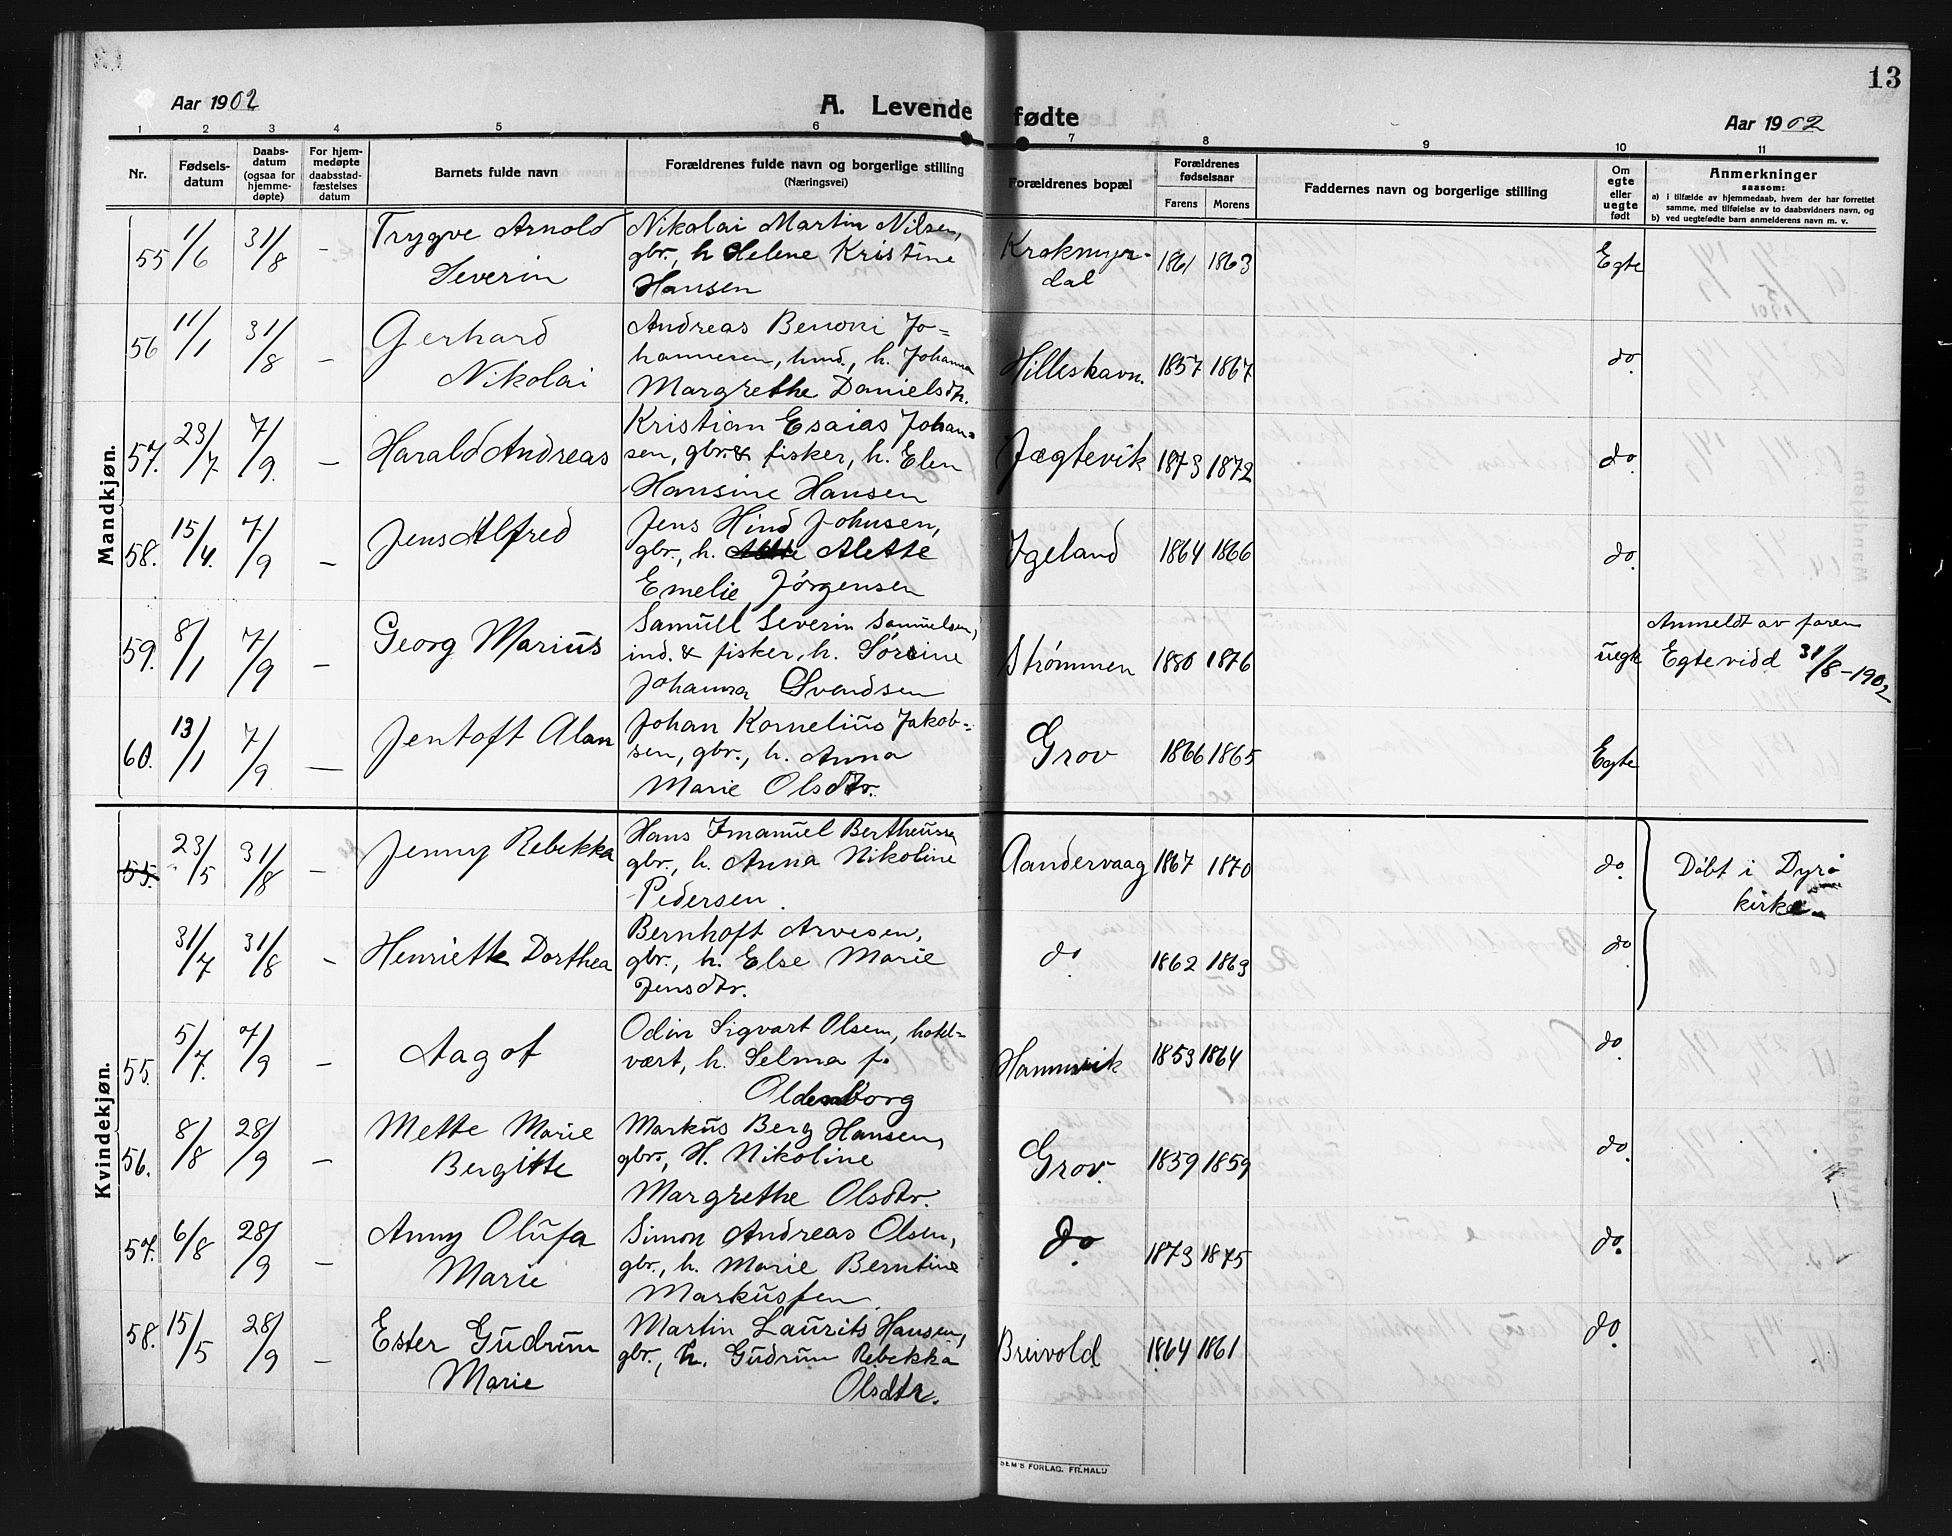 Aar 1902
A. Levende fødte
Aar 1902
13
1 2 3 4 5 6 7 8 9 10 11
Nr.
Fødsels-
datum
Daabs-
datum
(ogsaa for
hjemme-
døpte)
For hjem-
medøpte
daabsstad-
fæstelses
datum
Barnets fulde navn
Forældrenes fulde navn og borgerlige stilling
(Næringsvei)
Forældrenes bopæl
Forældrenes
fødselsaar
Farens Morens
Faddernes navn og borgerlige stilling
Om
egte
eller
uegte
født
Anmerkninger
saasom:
a) i tilfælde av hjemmedaab, hvem der har forrettet
samme, med tilføielse av to daabsvidners navn, og
b) ved uegtefødte barn anmelderens navn m. v.
Mandkjøn.
55 1/6 31/8 – Trygve Arnold
Severin
Nikolai Martin Nilsen,
gbr., h. Helene Kristine
Hansen
Krakmyr-
dal
1861 1863 Egte
56 11/1 31/8 – Gerhard
Nikolai
Andreas Benoni Jo-
hannesen, hmd., h. Johanna
Margrethe Danielsdtr.
Hilleshavn. 1857 1867 do.
57. 23/7 7/9. – Harald Andreas
Kristian Esaias Johan-
sen, gbr. & fisker, h. Elen
Hansine Hansen
Jægtevik 1873 1872 do.
58. 15/4. 7/9 – Jens Alfred
Jens Hind Johnsen,
gbr., h. Alette
Emelie Jörgensen
Igeland 1864 1866 do.
59. 8/1 7/9 – Georg Marius
Samuel Severin Samuelsen,
ind. & fisker, h. Sörine
Johanna Svendsen
Strømmen 1880 1876 uegte
Anmeldt av faren
Egtevidd 31/8-1902
60. 13/1 7/9 – Jentoft Alan
Johan Kornelius Jakob-
sen, gbr., h. Anna
Marie Olsdtr.
Grov 1866 1865 Egte
Kvindekjøn.
55. 23/5 31/8 – Jenny Rebekka
Hans Imanuel Bertheussen
gbr., h. Anna Nikoline
Pedersen.
Aandervaag 1867 1870 do.
Döbt i Dyrö
kirke.
31/7 31/8 – Henriette Dorthea
Bernhoft Arvesen,
gbr., h. Else Marie
Jensdtr.
do 1862 1863 do.
55. 5/7. 7/9 – Aagot
Odin Sigvart Olsen, hotel-
vært, h. Selma f.
Oldenborg
Hamnvik 1853 1864 do.
56. 8/8 28/9 – Mette Marie
Bergitte
Markus Berg Hansen,
gbr., H. Nikoline
Margrethe Olsdtr.
Grov. 1859 1859 do.
57. 6/8 28/9 – Anny Olufa
Marie
Simon Andreas Olsen,
gbr., h. Marie Berntine
Markussen
do. 1873 1875 do.
58. 15/5 28/9 – Ester Gudrun
Marie
Martin Laurits Hansen,
gbr., h. Gudrun Rebekka
Olsdtr.
Breivold 1864 1861 do.
SEM'S FORLAG. FR.HALD